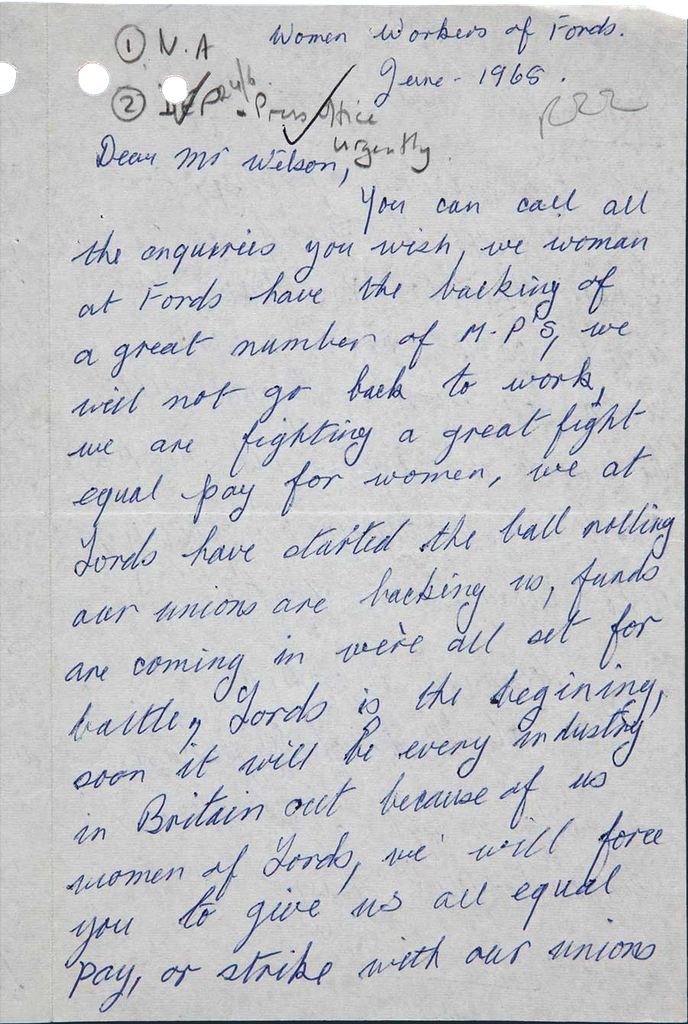 ① N.A
Women Workers of Fords.
June - 1968.
② DEP 24/6 - Press Office
urgently
Dear Mr Wilson,
You can call all
the enqueries you wish, we woman
at Fords have the backing of
a great number of M-P'S, we
will not go back to work,
we are fighting a great fight
equal pay for women, we at
Fords have started the ball rolling
our unions are backing us, funds
are coming in we're all set for
battle, Fords is the begining,
soon it will be every industry
in Britain out because of us
women of Fords, we will force
you to give us all equal
pay, or strike with our unions